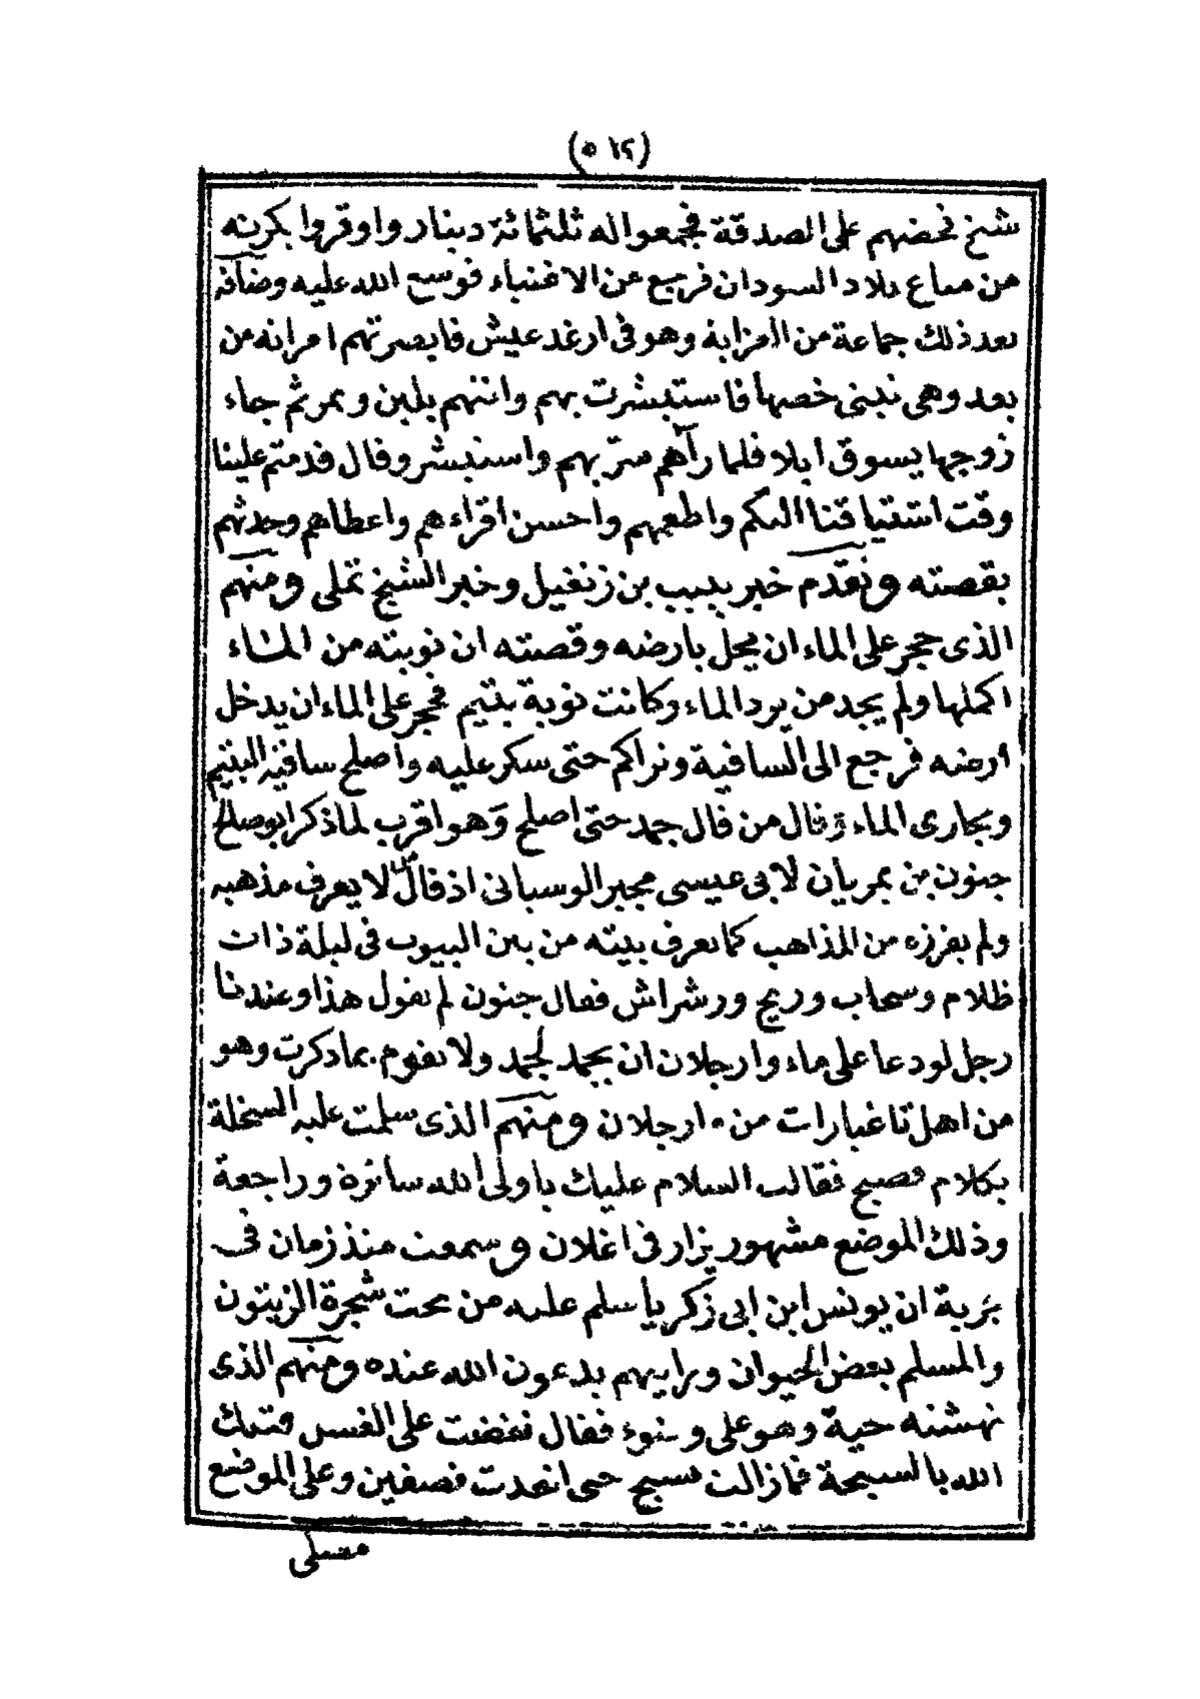 (٥١٢)
شيخ فحضهم على الصدقة فجمعوا له ثلثمائة دينار واوقروا بكرته
من متاع بلاد السودان فرجع من الاغنياء فوسع الله عليه وضافه
بعد ذلك جماعة من العزابة وهو فى ارغد عيش فابصرتهم امراته من
بعد وهى تبنى خصها فاستبشرت بهم واتتهم بلبن وتمر ثم جاء
زوجها يسوق ابلا فلما رآهم سرّ بهم واستبشر وقال قدمتم علينا
وقت اشتياقنا اليكم واطعمهم واحسن اقراءهم واعطاهم وحدثهم
بقصته وتقدم خبر يبيب بن زنغيل وخبر الشيخ تملى ومنهم
الذى حجر على الماء ان يحل بارضه وقصته ان نوبته من الماء
اكملها ولم يجد من يرد الماء وكانت نوبة يتيم فحجر على الماء ان يدخل
ارضه فرجع الى الساقية وتراكم حتى سكر عليه واصلح ساقية اليتيم
ومجارى الماء وقال من قال جمد حتى اصلح وهو اقرب لما ذكر ابو صالح
جنون بن يمريان لابى عيسى مجبر الوسيانى اذ قال من لا يعرف مذهبه
ولم يفرزه من المذاهب كما يعرف بيته من بين البيوت فى ليلة ذات
ظلام وسحاب وريح ورشراش فقال جنون لم تقول هذا وعندنا
رجل لو دعا على ماء وارجلان ان يجمد لجمد ولا يقوم بما ذكرت وهو
من اهل تاغيارات من وارجلان ومنهم الذى سلمت عليه السخلة
بكلام فصيح فقالت السلام عليك يا ولى الله سائرة وراجعة
وذلك الموضع مشهور يزار فى اغلان وسمعت منذ زمان فى
بربة ان يونس ابن ابى زكرياء سلم عليه من تحت شجرة الزيتون
والمسلم بعض الحيوان ورايتهم يدعون الله عنده ومنهم الذى
نهشته حية وهو على وضوء فقال نقضت على الغسل فتبك
الله يا لسبحة فما زالت تسبح حتى انقدت نصفين وعلى الموضع
مصلى